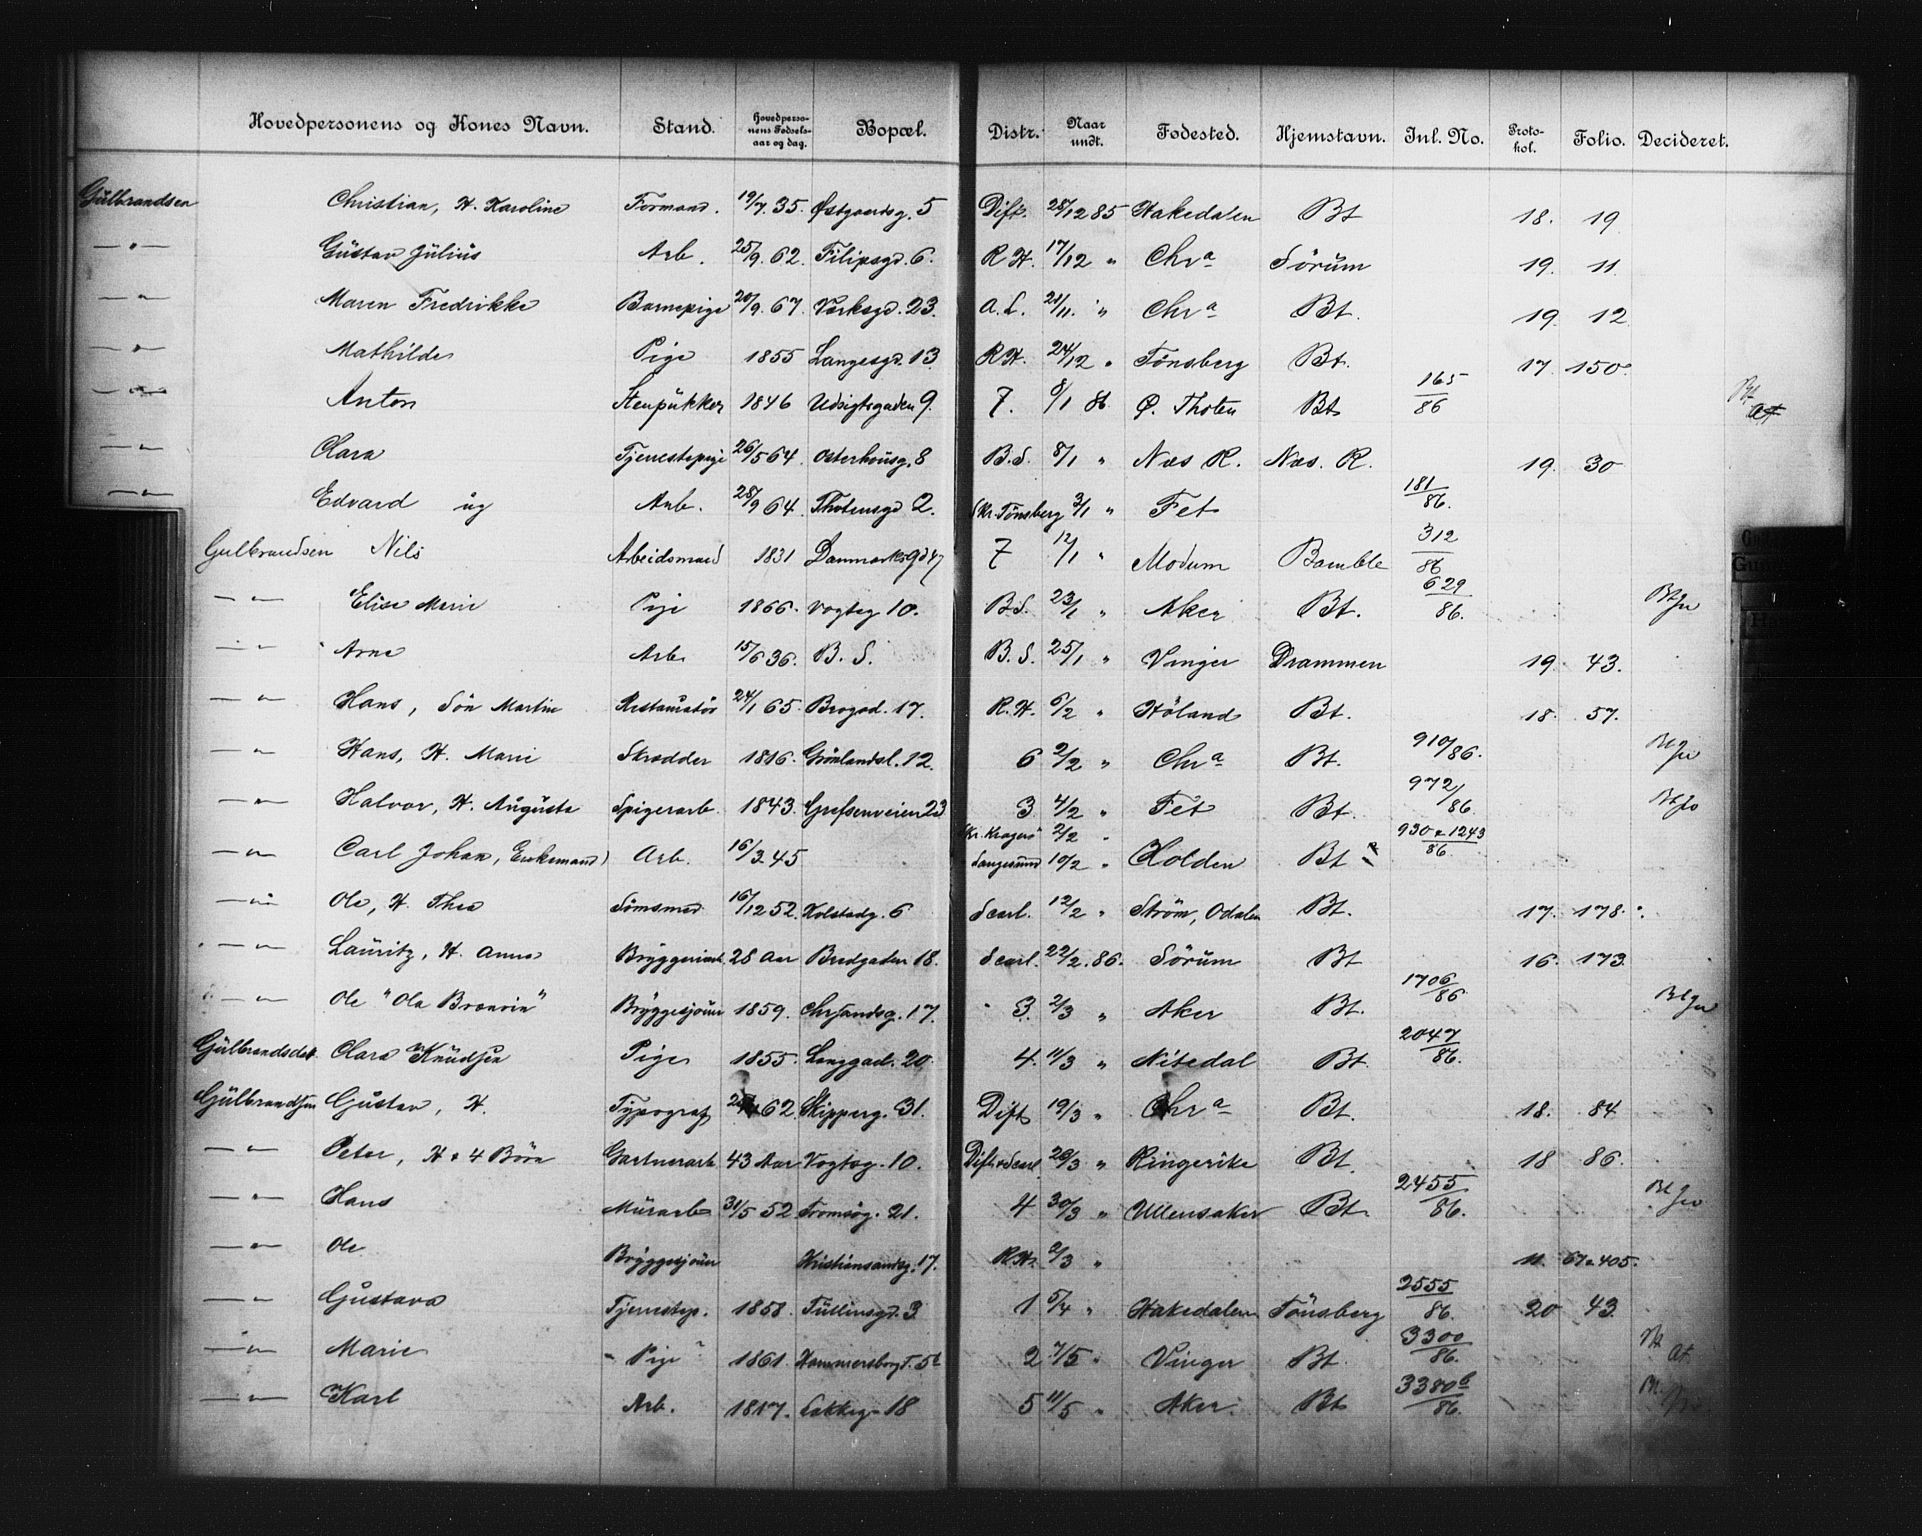 Hovedpersonens og Kones Navn. Stand. Hovedpersonens Fødselsaar og dag. Bopæl. Distr. Naar undt. Fødested. Hjemstavn. Inl. No. Protokol. Folio. Decideret.
Gulbrandsen Christian, H. Karoline Formand. 19/7. 35. Østgaardsg. 5 Dift. 28/12 85 Hakedalen Bt 18. 19
—"— Gustav Julius Arb. 25/9. 62. Filipsgd. 6. R.H. 17/12 " Chr a Sörum 19. 11.
—"— Maren Fredrikke Barnepige 20/9. 67. Værksgd. 23. A. S. 21/11. " Chr a Bt. 19. 12
—"— Mathilde Pige 1855 Langesgd. 13 R.H. 24/12 " Tönsberg Bt. 17. 150.
—"— Anton Stenpukker 1846 Udsigtsgaden 9. 7. 8/1 86. Ø. Thoten Bt 165/86 Bt At
—"— Clara Tjenestepige 26/5 64. Osterhausg. 8 B.S. 8/1 " Næs R. Næs. R. 19. 30
—"— Edvard ug Arb. 28/9 64. Thotensgd 2. Skr. Tönsberg 3/1 " Fet 181/86.
Gulbrandsen Nils Arbeidsmand 1831 Danmarksgd 47 7 12/1 " Modum Bamble 312/86
—"— Elise Marie Pige 1866. Vogtsg 10. B.S. 23/1 " Aker Bt. 629/86. Bt
—"— Arne Arb. 15/6 36. B. S. B. S. 25/1 " Vinger Drammen 19. 43.
—"— Hans, Sön Martin Restauratör 24/1 65. Brogad. 17. R.H. 6/2 " Höland Bt. 18. 57.
—"— Hans, H. Marie Skrædder 1816. Grönlandsl. 12. 6 2/2 " Chr a Bt. 910/86. Bt
—"— Halvor, H. Augusta Spigerarb. 1843. Grefsenveien 23 3 4/2 " Fet Bt. 972/86. Bt
—"— Carl Johan, (Enkemand) Arb. 16/3 45 Skr. Kragerö 2/2 " Langesund 10/2 " Holden Bt 930 & 1243/86.
—"— Ole, H. Thea Sömsmed 16/12 52. Holstadg. 6 Scarl. 12/2 " Ström, Odalen Bt. 17. 178.
—"— Lauritz, H. Anna Bryggeriarb. 28 Aar Bredgaden 18. Scarl. 22/2. 86. Sörum Bt 16. 173.
—"— Ole "Ola Brænvin" Bryggesjouer 1859. Chrsandsg. 17. 3. 2/3 " Aker Bt. 1706/86 Bt
Gulbrandsdat. Clara Knudsen Pige 1855. Langgad. 20. 4. 11/3 " Nitedal Bt. 2047/86.
Gulbrandsen Gustav, H. Typograf 62. Skipperg. 31. Dift 19/3 " Chr a Bt. 18. 84
—"— Peter, H & 4 Börn Gartnerarb 43 Aar Vogtsg. 10. Dift. & Scarl 26/3 " Ringerike Bt. 18 86.
—"— Hans Murarb 31/5 52 Tromsög. 21. 4 30/3 " Ullensaker Bt. 2455/86. Bt
—"— Ole Bryggesjouer Kristiansandsg. 17. R.H. 2/3 " 11. 67 & 405.
—"— Gustava Tjenestep. 1858. Tullinsgd. 3 1 5/4 " Hakedalen Tönsberg 2555/86. 20 43.
—"— Marie Pige 1861. Hammersborg T. 5 b 2 7/5 " Vinger Bt. 3300/86. Bt At
—"— Karl Arb. 1817. Lakkeg. 18 5 11/5 " Aker. Bt 3380 b/86. Bt.